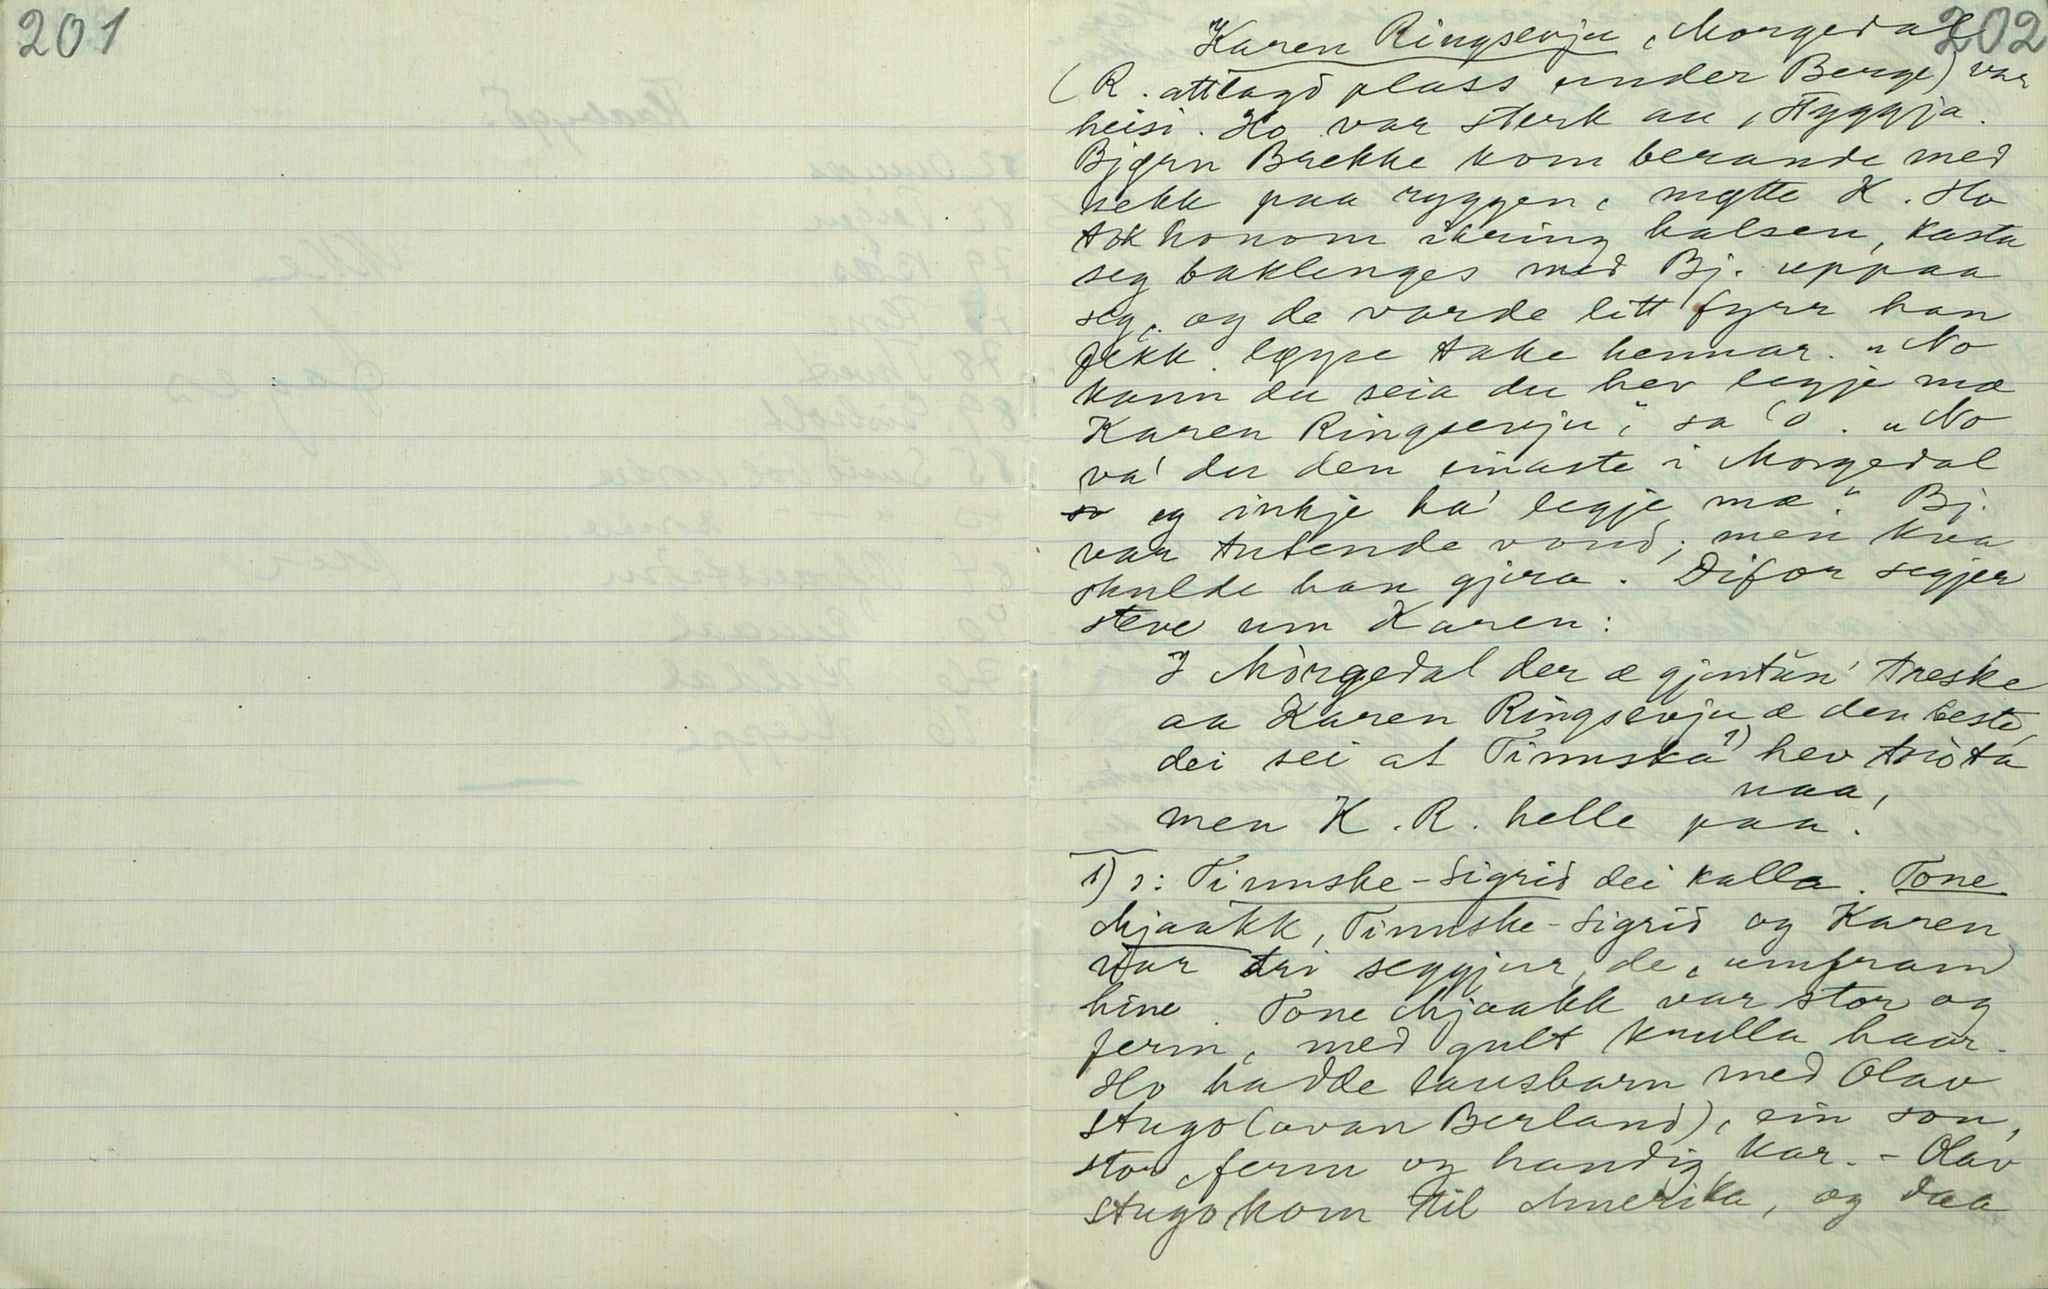 201
202
Karen Ringsevju, Morgedal
(R. attlagd plass under Berge) var
heisi. Ho var sterk au, Styggja.
Bjørn Brekke kom berande med
sekk paa ryggen, møtte K. Ho
tok honom ikring halsen, kasta
seg baklenges med Bj. uppaa
seg, og de varde litt fyrr han
fekk løyse take hennar. „No
kann du seia du hev legje mæ
Karen Ringsevju," sa 'o. „No
va' du den einaste i Morgedal
so eg inkje ha' legje mæ." Bj.
var tutende vond; men kva
skulde han gjera. Difor segjer
steve um Karen:
I Mòrgedal der æ gjentun' treske
aa Karen Ringsevju æ den beste,
dei sei at Tinnska 1) hev trota
naa,
men K. R. helle paa.
1) ɔ: Tinnske-Sigrid dei kalla. Tone
Mjaakk, Tinnske-Sigrid og Karen
var tri seggjur, de, umfram
hine. Tone Mjaakk var stor og
ferm, med gult krulla haar.
Ho hadde lausbarn med Olav
Stugo (ovan Berland), ein son,
stor, ferm og handig kar. - Olav
Stugo kom til Amerika, og daa